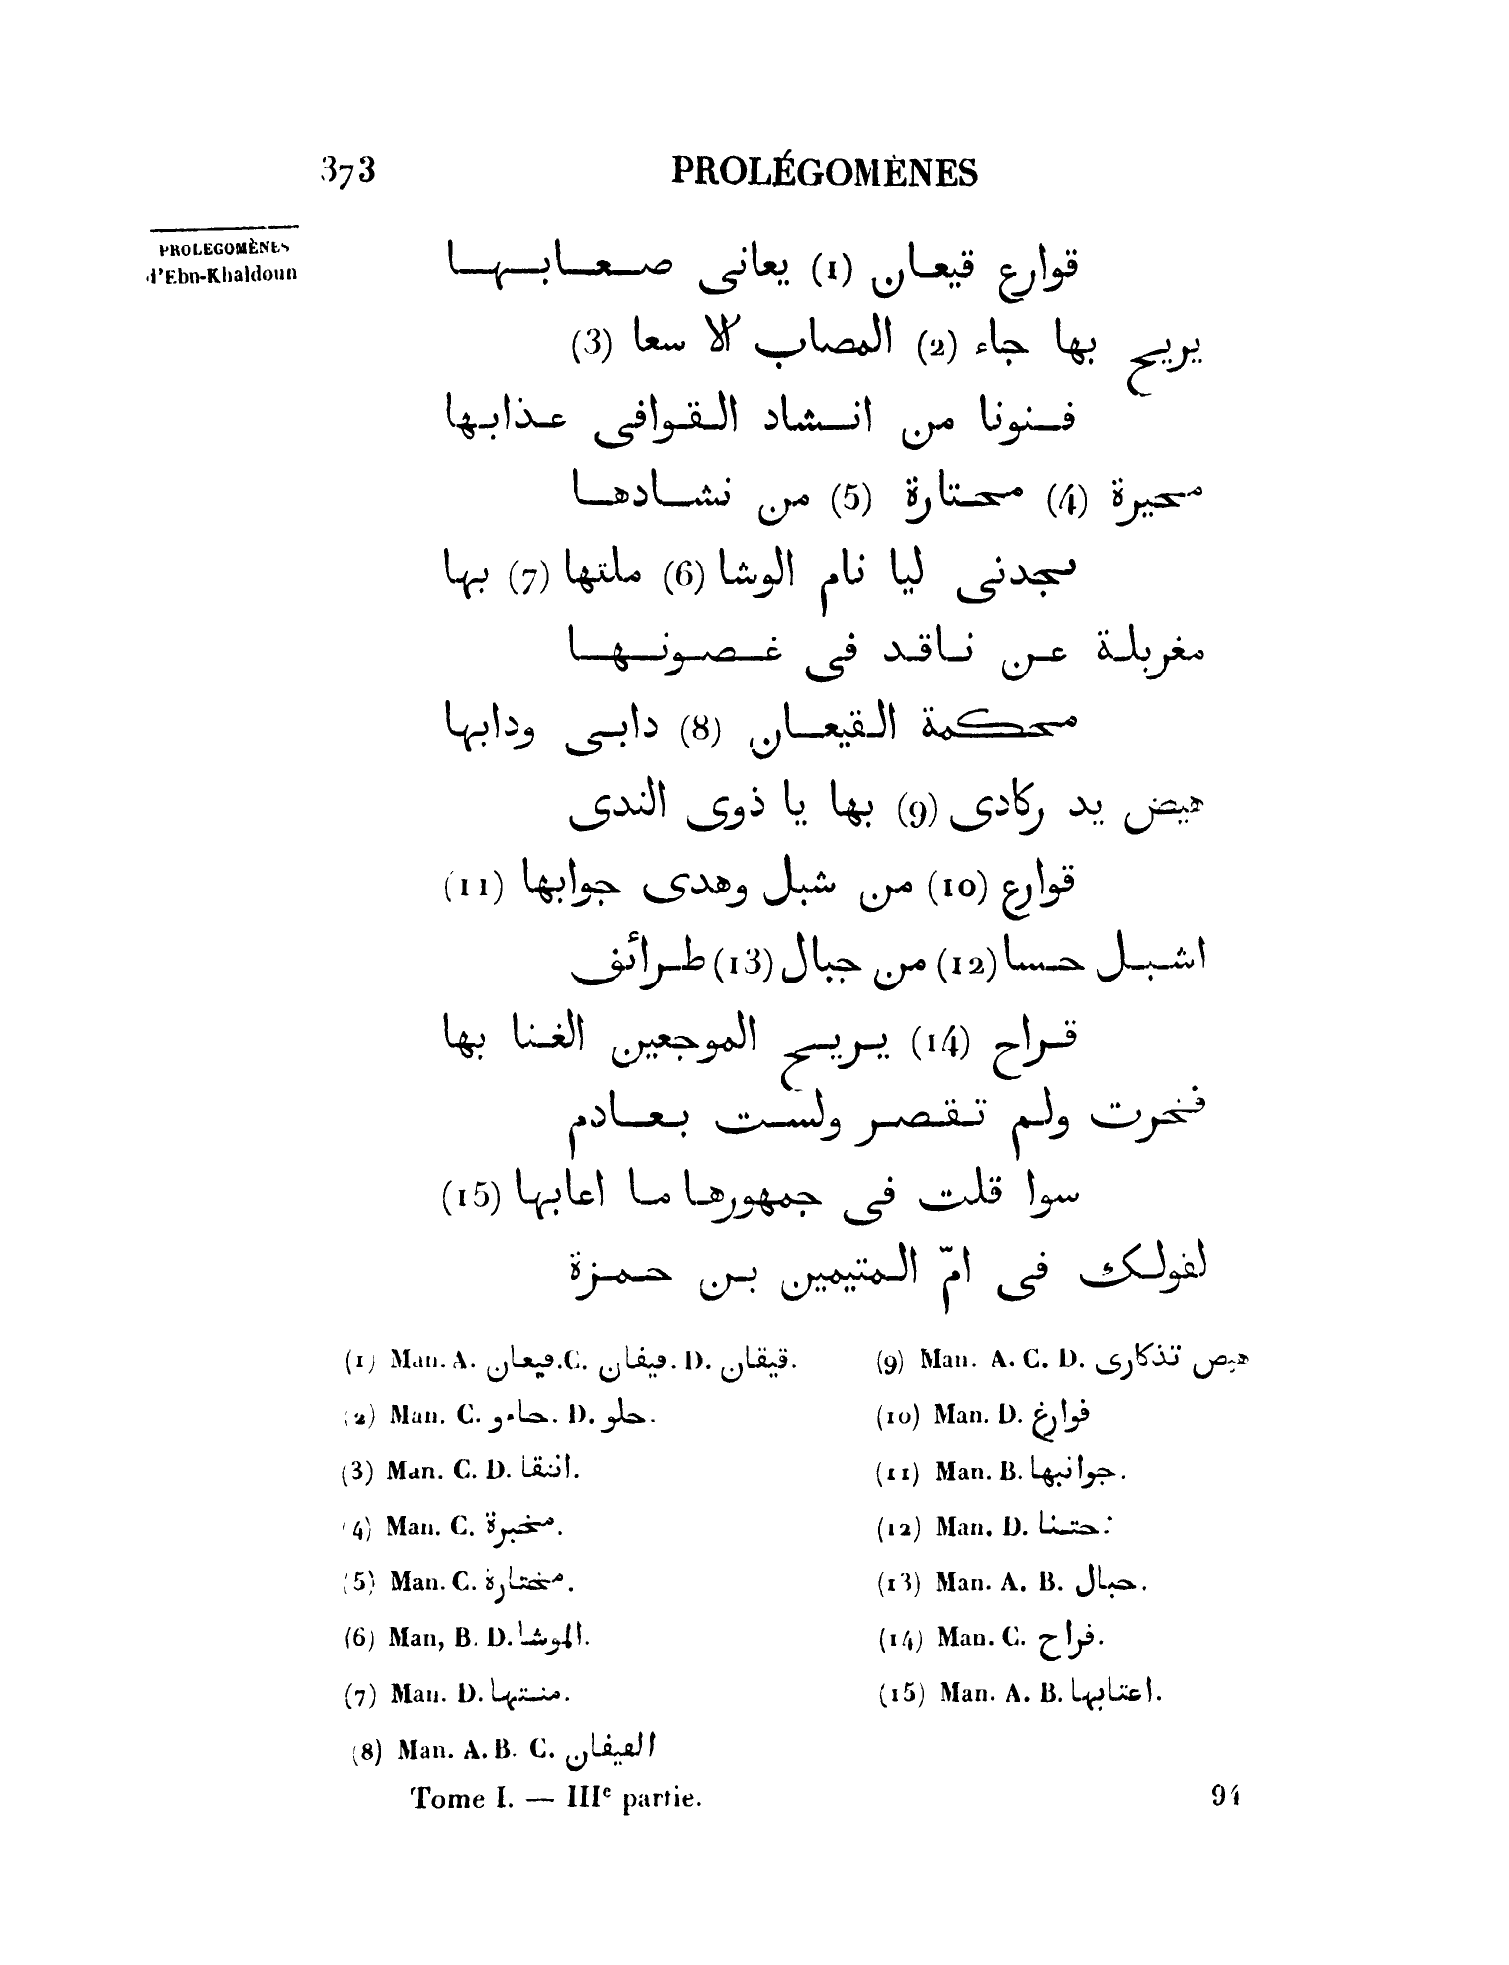 373
PROLÉGOMÈNES
PROLEGOMÈNES
d'Ebn-Khaldoun
قوارع قيعان (1) يعانى صعابها
يريح بها جاء (2) المصاب كلا سعا (3)
فنونا من انشاد القوافى عذابها
محيرة (4) محتارة (5) من نشادها
تجدنى ليا نام الوشا (6) ملتها (7) بها
مغربلة عن ناقد فى غصونها
محكمة القيعان (8) دابى ودابها
هيض يد ركادى (9) بها يا ذوى الندى
قوارع (10) من شبل وهدى جوابها (11)
اشبل حسا (12) من جبال (13) طرائف
قراح (14) يريح الموجعين الغنا بها
فخرت ولم تقصر ولست بعادم
سوا قلت فى جمهورها ما اعابها (15)
لقولك فى امّ المتيمين بن حمزة
(1) Man. A. فيعان. C. فيفان. D. قيقان.
(2) Man. C. حاءو. D. حلو.
(3) Man. C. D. انتقا.
(4) Man. C. مخبرة.
(5) Man. C. مختارة.
(6) Man, B. D. الموشا.
(7) Man. D. منتها.
(8) Man. A. B. C. الفيفان
(9) Man. A. C. D. هيص تذكارى
(10) Man. D. فوارغ
(11) Man. B. جوانبها.
(12) Man. D. حتنا.
(13) Man. A. B. حبال.
(14) Man. C. فراح.
(15) Man. A. B. اعتابها.
Tome I. — IIIe partie.
94